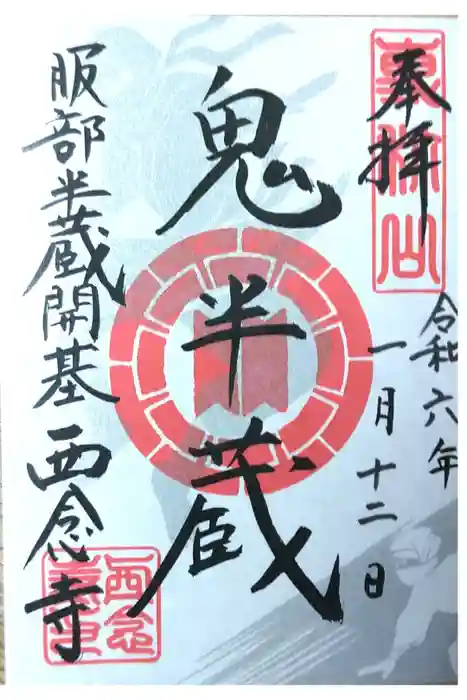 奉拝
令和六年
一月十二日
鬼半蔵
服部半蔵開基西念寺